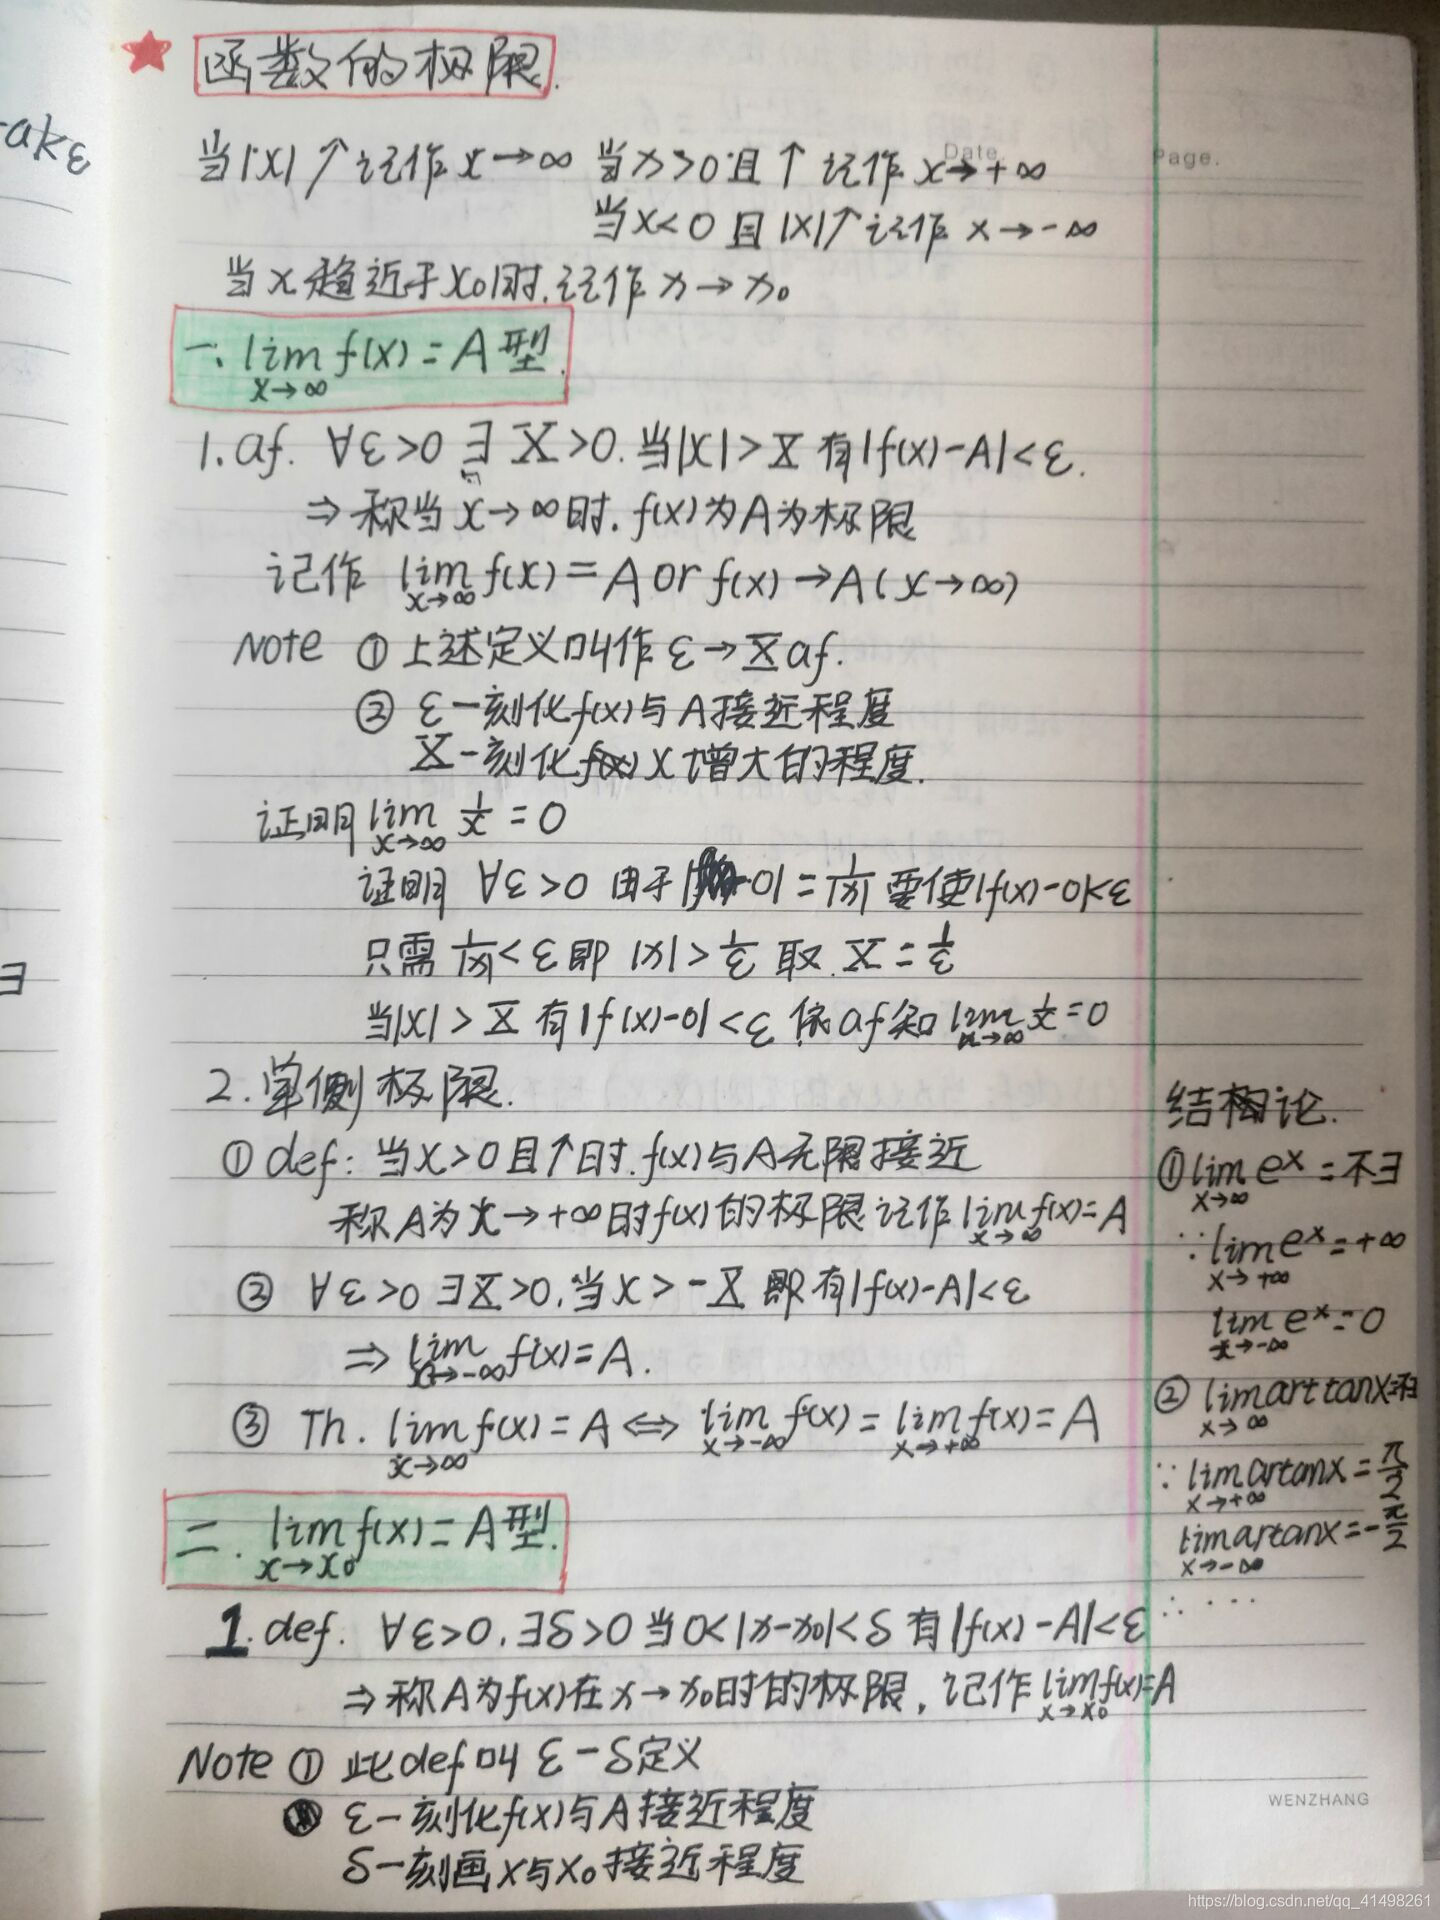 ake
∃
函数的极限.
Date.
Page.
当|x|↑记作 x→∞ 当x>0且↑记作 x→+∞
当x<0且|x|↑记作 x→-∞
当x趋近于x₀时.记作 x→x₀
一. lim f(x)=A型.
x→∞
1. af. ∀ε>0 ∃ X>0. 当|x|>X 有|f(x)-A|<ε.
⇒称当x→∞时. f(x)为A为极限
记作 lim f(x)=A or f(x)→A(x→∞)
x→∞
Note ①上述定义叫作 ε→X af.
② ε一刻化f(x)与A接近程度
X一刻化 x增大的程度.
证明 lim 1/x = 0
x→∞
证明 ∀ε>0 由于| -0|=1/|x| 要使|f(x)-0|<ε
只需 1/|x|<ε即 |x|>1/ε 取. X=1/ε
当|x|>X 有|f(x)-0|<ε 依af知 lim 1/x=0
x→∞
2. 单侧极限.
① def: 当x>0且↑时. f(x)与A无限接近
称A为x→+∞时f(x)的极限记作 lim f(x)=A
x→∞
② ∀ε>0 ∃X>0. 当x>-X 即有|f(x)-A|<ε
⇒ lim f(x)=A.
x→-∞
③ Th. lim f(x)=A ⇔ lim f(x)= lim f(x)=A
x→∞ x→-∞ x→+∞
结论.
① lim eˣ=不∃
x→∞
∵ lim eˣ=+∞
x→+∞
lim eˣ=0
x→-∞
② lim arttanx=不∃
x→∞
∵ lim artanx=π/2
x→+∞
lim artanx=-π/2
x→-∞
∴ ...
二. lim f(x)=A型.
x→x₀
1. def. ∀ε>0. ∃δ>0 当0<|x-x₀|<δ 有|f(x)-A|<ε
⇒称A为f(x)在x→x₀时的极限, 记作 lim f(x)=A
x→x₀
Note ① 此def叫 ε-δ定义
ε一刻化f(x)与A接近程度
δ一刻画x与x₀接近程度
WENZHANG
https://blog.csdn.net/qq_41498261